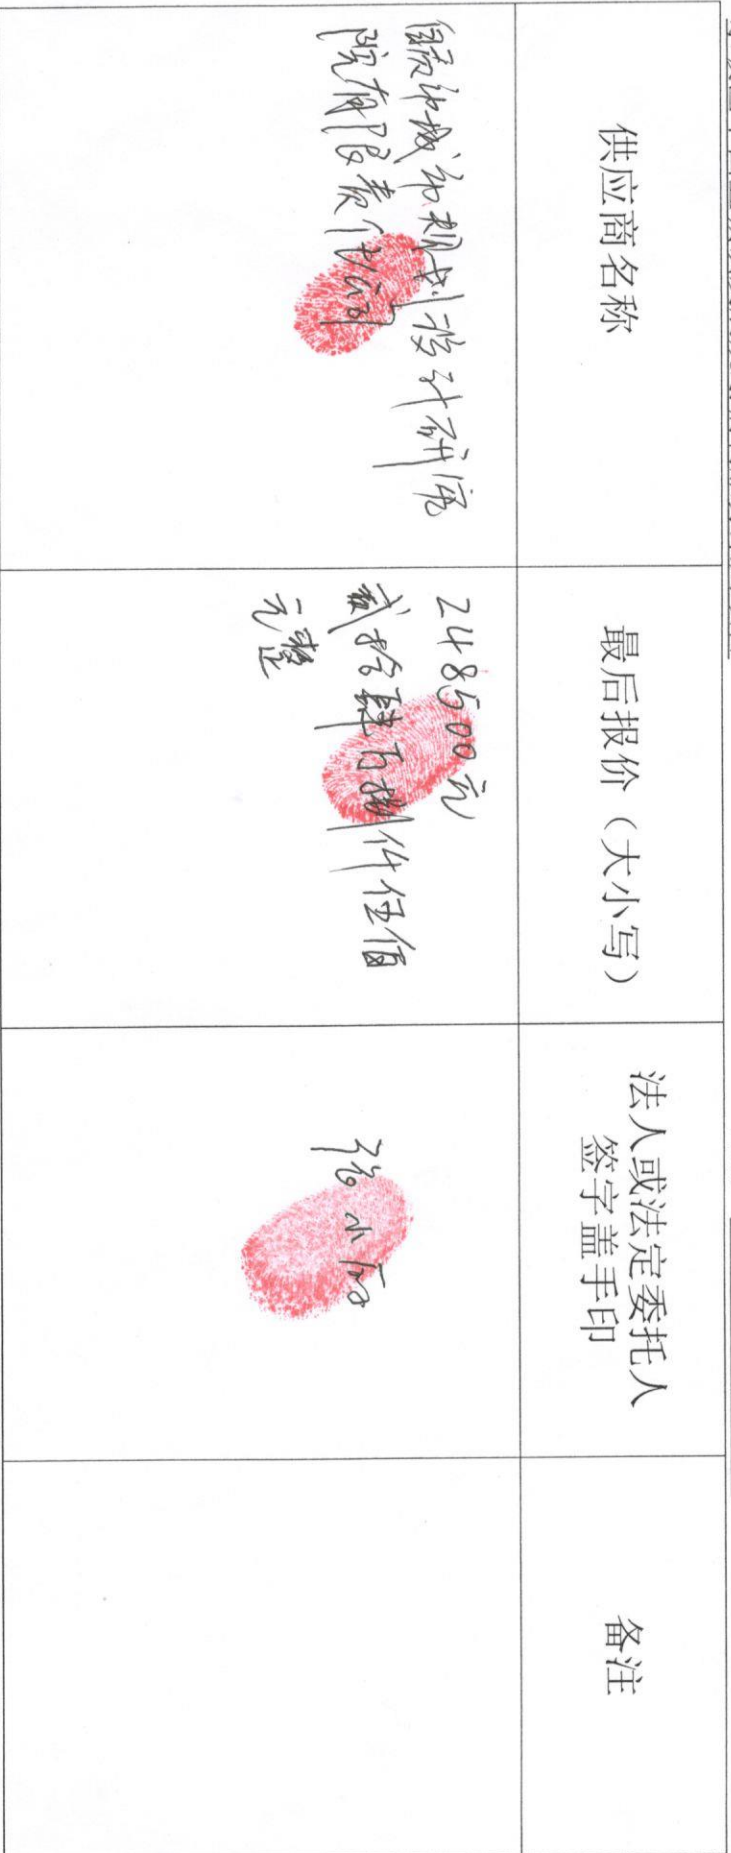 供应商名称
最后报价（大小写）
法人或法定委托人
签字盖手印
备注
自贡市城市规划设计研究
院有限责任公司
248500元
贰拾肆万捌仟伍佰
元整